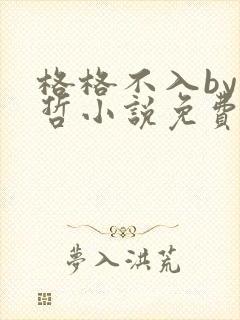 格格不入by
哲小說免費
夢入洪荒